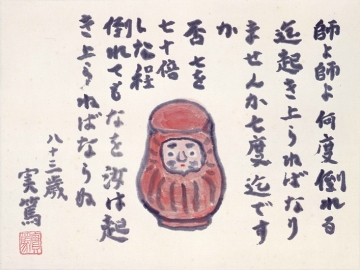 師よ師よ何度倒れる
迄起き上らねばなり
ませんか七度迄です
か
否七を
七十倍
した程
倒れてもなを汝は起
き上らねばならぬ
八十三歳
実篤